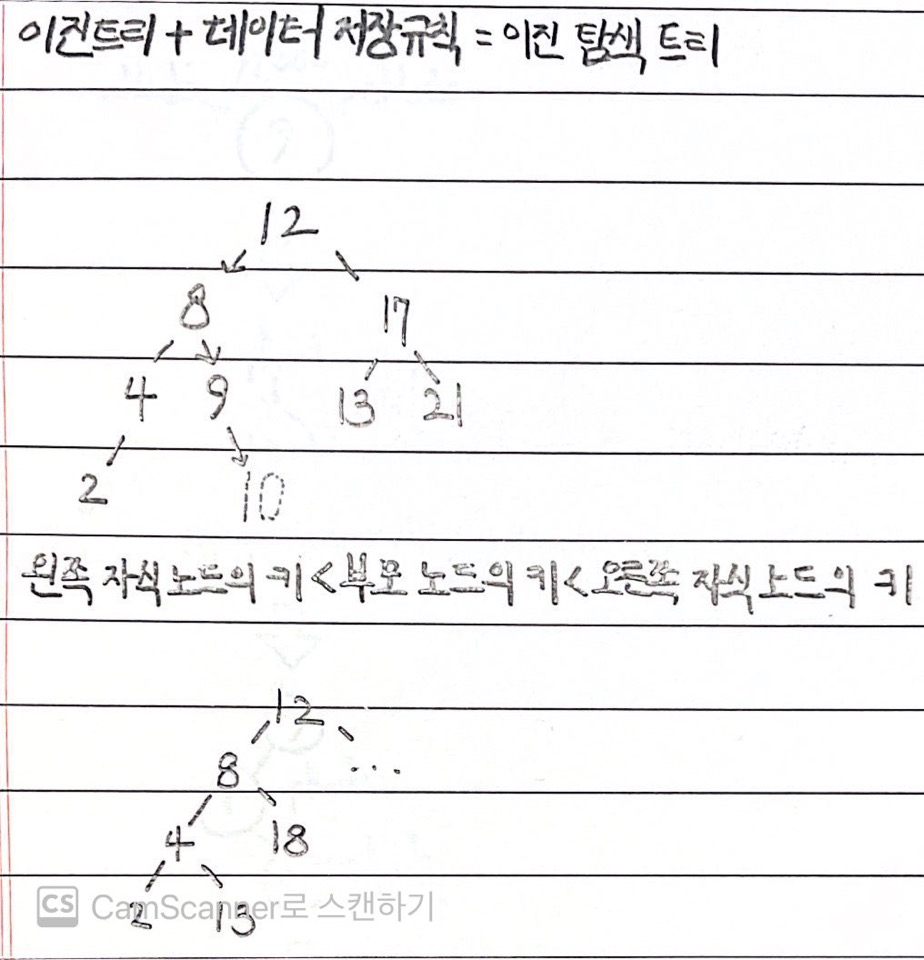 이진트리 + 데이터 저장규칙 = 이진 탐색 트리
12
8 17
4 9 13 21
2 10
왼쪽 자식노드의 키 < 부모 노드의 키 < 오른쪽 자식 노드의 키
12
8 ...
4 18
2 13
CS CamScanner로 스캔하기